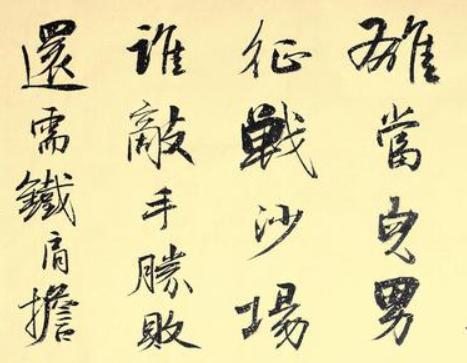 雄當男
征戰沙場
誰敵手勝敗
還需鐵肩擔